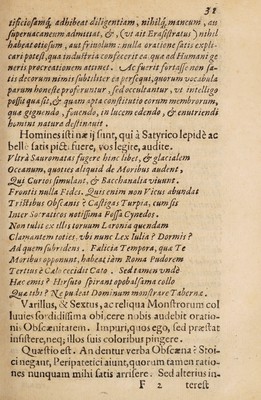 31
tificiosamq́, adhibeat diligentiam, nihilq́, mancum, an
superuacaneum admittat, &, (vt ait Erasistratus) nihil
habeat otiosum, aut friuolum: nulla oratione satis expli-
cari potest, qua industria confecerit ea quæ ad Humani ge
neris procreationem attinet. Ac fuerit fortasse non sa-
tis decorum nimis subtiliter ea persequi, quorum vocabula
parum honeste proferuntur, sed occultantur, vt intelligo
possit qua sit, & quam apta constitutio eorum membrorum,
quæ gignendo, fouendo, in lucem edendo, & enutriendi
hominis natura destinauit.
Homines isti næ ij sunt, qui à Satyrico lepidè ac
bellè satis picti fuere, vos legite, audite.
Vltrà Sauromatas fugere hinc libet, & glacialem
Oceanum, quoties aliquid de Moribus audent,
Qui Curios simulant, & Bacchanalia viuunt.
Frontis nulla Fides. Quis enim non Vicus abundat
Tristibus Obscænis? Castigas Turpia, cum sis
Inter Socraticos notissima Fossa Cynædos.
Non tulit ex illis toruum Laronia quendam
Clamantem toties, vbi nunc Lex Iulia? Dormis?
Ad quem subridens. Fælicia Tempora, quæ Te
Moribus opponunt, habeat iàm Roma Pudorem
Tertius è Cælo cecidit Cato. Sed tamen vndè
Hæc emis? Hirsuto spirant opobalsama collo
Quæ tibi? Ne pudeat Dominum monstrare Tabernæ.
Varillus, & Sextus, ac reliqua Monstrorum col
luuies sordidissima obijcere nobis audebit oratio-
nis Obscænitatem. Impuri, quos ego, sed præstat
insistere, neq; illos suis coloribus pingere.
Quæstio est. An dentur verba Obscæna? Stoi-
ci negant, Peripatetici aiunt, quorum tamen ratio-
nes nunquam mihi satis arrisere. Sed alterius in-
F 2 terest